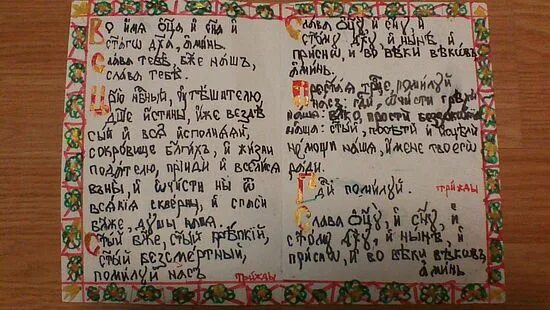 Во имя ѻц҃а и сн҃а и
ст҃агѡ дх҃а, аминь.
Слава тебѣ, бж҃е нашъ,
слава тебѣ.
Цр҃ю нб҃ный, ѹтѣшителю,
дш҃е истины, иже вездѣ
сый и вся исполняяй,
сокровище благихъ, и жизни
подателю, прииди и вселися
в ны, и ѡчисти ны ѿ
всякія скверны, и спаси
бл҃же, душы нашя.
Ст҃ый бж҃е, ст҃ый крѣпкій,
ст҃ый безсмертный,
помилуй насъ
трижды
Слава ѻц҃у, и сн҃у, и
ст҃ому дх҃у, и нынѣ, и
приснѡ, и во вѣки вѣковъ,
аминь.
Прест҃ая трц҃е, помилуй
насъ: гдⷭ҇и, ѡчисти грѣхи
нашя: влⷣко, прости беззаконія
нашя: ст҃ый, посѣти и исцѣли
немощи нашя, имене твоегѡ
ради.
Гдⷭ҇и помилуй. трижды
Слава ѻц҃у, и сн҃у, и
ст҃ому дх҃у, и нынѣ, и
приснѡ, и во вѣки вѣковъ,
аминь